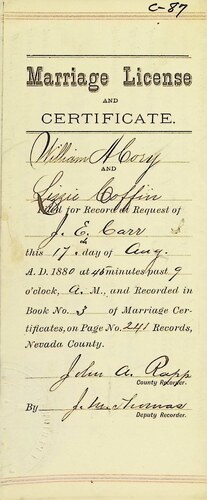 C-87
Marriage License
AND
CERTIFICATE.
William H Cory
AND
Lizzie Coffin
Filed for Record at Request of
J. E. Carr
this 17th day of Aug.
A. D. 1880 at 45 minutes past 9
o'clock, A. M., and Recorded in
Book No. 3 of Marriage Cer-
tificates, on Page No. 241 Records,
Nevada County.
John A. Rapp
County Recorder.
By J. M. Thomas
Deputy Recorder.